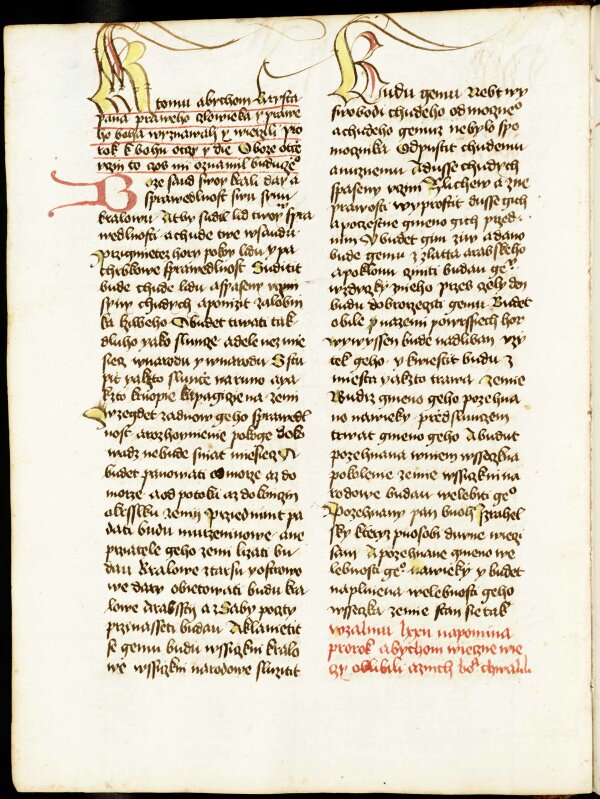 K tomu abychom krysta
pana praweho czlowieka y prawe
ho boha wyznawali y wierzili pro
rok k bohu otczy y die O boze otcze
rzin to czos mi oznamil buduczo
Boze saud swoy krali day a
sprawedlnost swu synu
kralowu Aby sudil lid twoy spra
wedlnosti a chude twe w saudu
Przigmiete hory pokoy lidu y pa
hrbkowe sprawedlnost Suditi
bude chude lidu a spaseny uczin
syny chudych a ponizi zalobni
ka krziweho Y bude trwati tak
dluho yako slunce a dele nez mie
siecz w narodu y w narodu Sstu
pi yakzto slunce na runo a ya
kzto kruopie krapagicze na zemi
Wzegdet za dnow geho sprawedl
nost a rozhognienie pokoge doko
wadz nebude sniat miesiecz A
budet panowati od morze az do
morze a od potoku az do konczin
okrslka zemie Przied nim pa
dati budu murzeninowe a ne
przatele geho zemi lizati bu
dau Kralowe z tarsu y ostrowo
we dary obietowati budu kra
lowe Arabssti a z Saby pocty
przinasseti budau A klanieti
se gemu budu wssiczkni kralo
we wssiczkni narodowe sluziti
Budu gemu Nebt wy
swobodi chudeho od mocneo
a chudeho gemuz nebylo spo
mocznika Odpusti chudemu
a nuznemu A dusse chudych
spaseny uczini Z lichew a z ne
prawosti wyprosti dusse gich
a pocztiene gmeno gich przed
nim Y budet ziw a dano
bude gemu z zlatta arabskeho
a poklonu cziniti budau geo
wzdyczky z nieho przes czely den
budu dobrorzeczeti gemu Budet
obile na zemi po wrssiech hor
wywyssen bude nad liban uzi
tek geho y kwiesti budu z
miesta yakzto trawa zemie
Budiz gmeno geho pozehna
no na wieky przed sluncem
trwa gmeno geho A budut
pozehnana w niem wsseczka
pokolenie zemie wssiczkni na
rodowe budau welebiti geo
Pozehnany pan buoh Izrahel
sky kteryz puosobi diwne wieczi
sam A pozehnane gmeno we
lebnosti geo na wieky y budet
naplniena welebnosti geho
wsseczka zemie stan se tak
W zalmu lxxii napomina
prorok abychom wieczne wie
czy oblibili a z nich boha chwalili